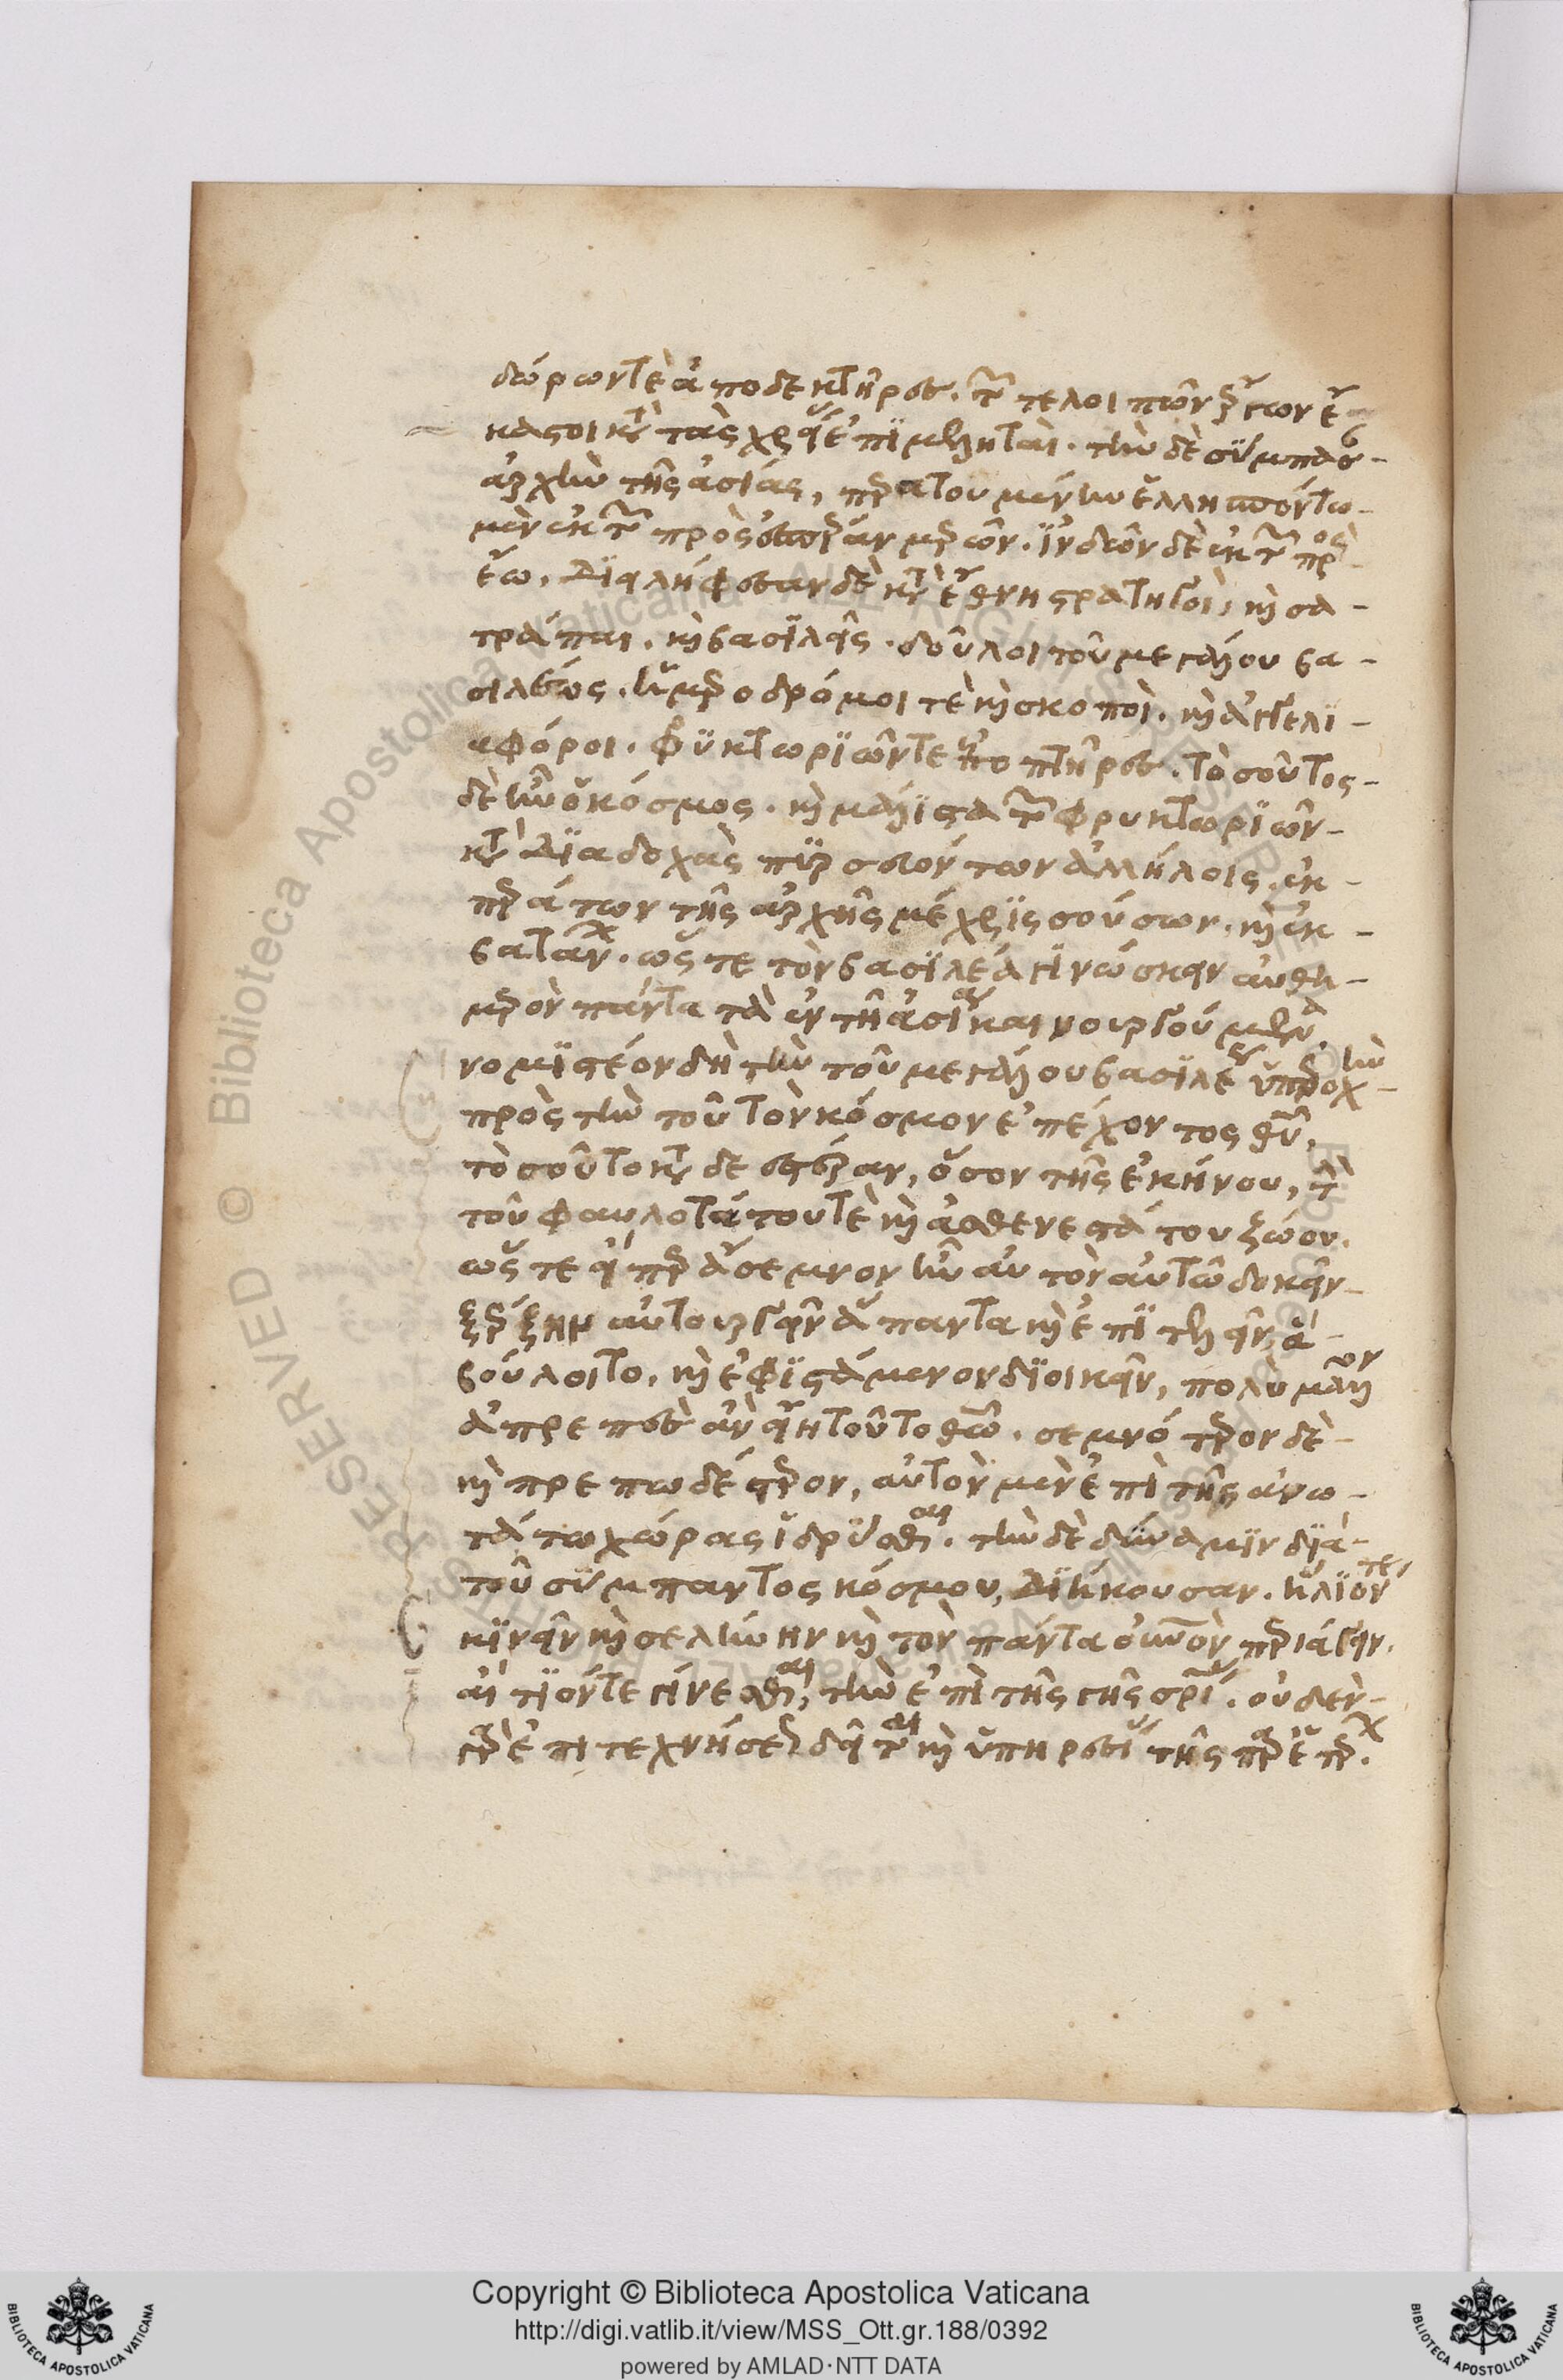 δώρων τε ἀποδεκτῆρες. τῶν τε λοιπῶν ἔργων ἕ-
καστοι κατὰ τὰς χρείας ἐπιμεληταί. τὴν δὲ σύμπασαν
ἀρχὴν τῆς ἀσίας, περατουμένην ἑλλησπόντω
μὲν ἐκ τῶν πρὸς ἑσπέραν μερῶν. ἰνδῶν δὲ ἐκ τῶν πρὸς
ἕω, διειλήφεσαν δὲ κατὰ ἔθνη στρατηγοὶ, καὶ σα-
τράπαι. καὶ βασιλεῖς. δοῦλοι τοῦ μεγάλου βα-
σιλέως. ἡμεροδρόμοι τὲ καὶ σκοποὶ. καὶ ἀγγελι-
αφόροι. φυκτωριῶν τε ἐποπτῆρες. τοσοῦτος
δὲ ἦν ὁ κόσμος. καὶ μάλιστα τῶν φρυκτωριῶν
κατὰ διαδοχὰς πυρσευόντων ἀλλήλοις. ἐκ
περάτων τῆς ἀρχῆς μέχρις σούσων. καὶ ἐκ-
βατάνων. ὥς τε τὸν βασιλέα γινώσκειν αὐθη-
μερὸν πάντα τὰ ἐν τῆ ἀσία καινουργούμενα.
νομιστέον δὴ τὴν τοῦ μεγάλου βασιλέως ὑπεροχὴν
πρὸς τὴν τοῦ τὸν κόσμον ἐπέχοντος θεοῦ,
τοσοῦτον καταδεεστέραν, ὅσον τῆς ἐκείνου, τὴν
τοῦ φαυλοτάτου τὲ καὶ ἀσθενεστάτου ζώου.
ὥς τε εἴπερ ἄσεμνον ἦν αὐτὸν αὐτῶ δοκεῖν
ξέρξην αὐτουργεῖν ἅπαντα καὶ ἐπιτελεῖν, ἃ
βούλοιτο, καὶ ἐφιστάμενον διοικεῖν, πολὺ μᾶλλον
ἀπρεπὲς ἂν εἴη τοῦτο θεῶ. σεμνότερον δὲ
καὶ πρεπωδέστερον, αὐτὸν μὲν ἐπὶ τῆς ἀνω-
τάτω χώρας ἱδρύσθαι. τὴν δὲ δύναμιν διὰ
τοῦ σύμπαντος κόσμου, διήκουσαν. ἥλιόν τε
κινεῖν καὶ σελήνην καὶ τὸν πάντα οὐρανὸν περιάγειν.
αἴτιόν τε γίνεσθαι, τὴν ἐπὶ τῆς γῆς σωτηρίας. οὐδὲν
γὰρ ἐπιτεχνήσεως δεῖ αὐτῶ καὶ ὑπηρεσίας τῆς παρ' ἑτέρων.